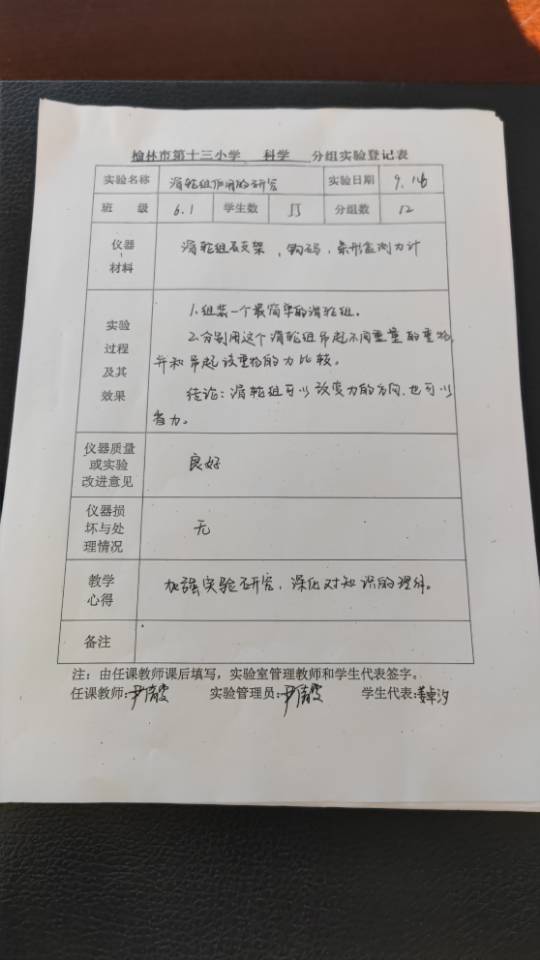 榆林市第十三小学 科学 分组实验登记表
实验名称 滑轮组作用的研究 实验日期 9.16
班 级 6.1 学生数 55 分组数 12
仪器 材料 滑轮组及支架，钩码，条形盒测力计
实验过程及其效果
1.组装一个最简单的滑轮组。
2.分别用这个滑轮组吊起不同重量的重物,
并和吊起该重物的力比较。
结论：滑轮组可以改变力的方向,也可以
省力。
仪器质量或实验改进意见 良好
仪器损坏与处理情况 无
教学心得 加强实验研究，深化对知识的理解。
备注
注：由任课教师课后填写，实验室管理教师和学生代表签字。
任课教师: 尹 实验管理员: 尹 学生代表: 姜卓汐